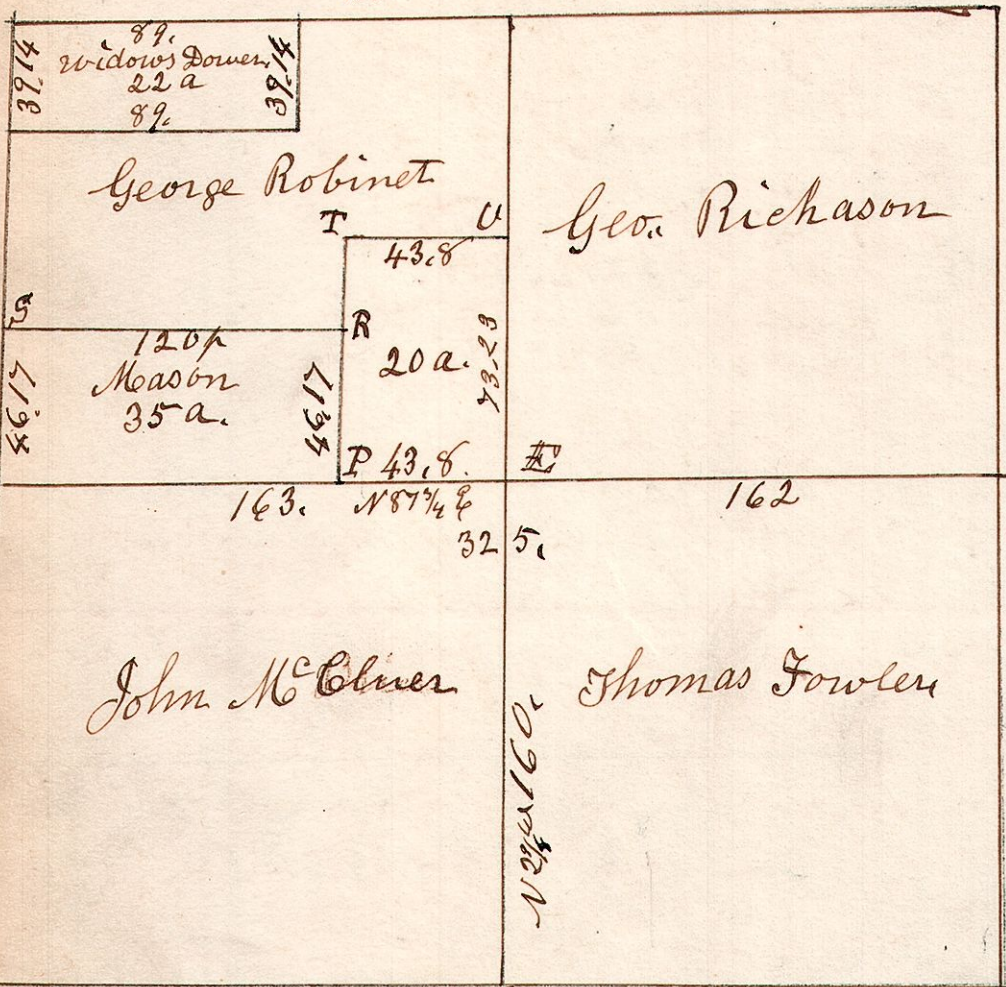 89.
Widows Dower
22 a
89.
39.14
39.14
George Robinet
Geo. Richason
T
U
43.8
S
R
120 p
Mason
35 a.
46.17
46.17
20 a.
73.23
P 43.8.
E
163.
N 87 3/4 E
162
32 5.
John McCluer
Thomas Fowler
N 2 1/4 W 160.